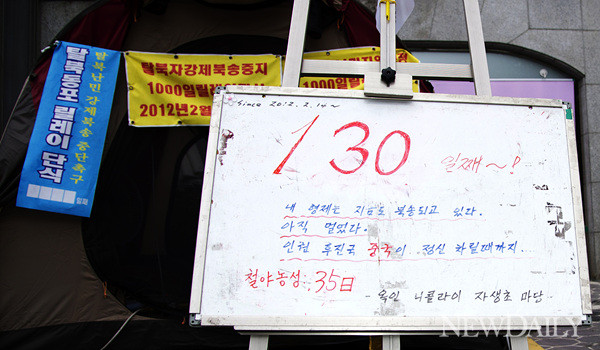 탈북난민 강제북송중단촉구
탈북동포 릴레이 단식
일째
탈북자강제북송중지
1000일릴
2012년2월
1000일릴
Since 2012. 2. 14~
130 일째~!
내 형제는 지금도 북송되고 있다.
아직 멀었다.
인권 후진국 중국이 정신 차릴때까지...
철야농성: 35日
- 옥인 니콜라이 자생초 마당 -
NEWDAILY